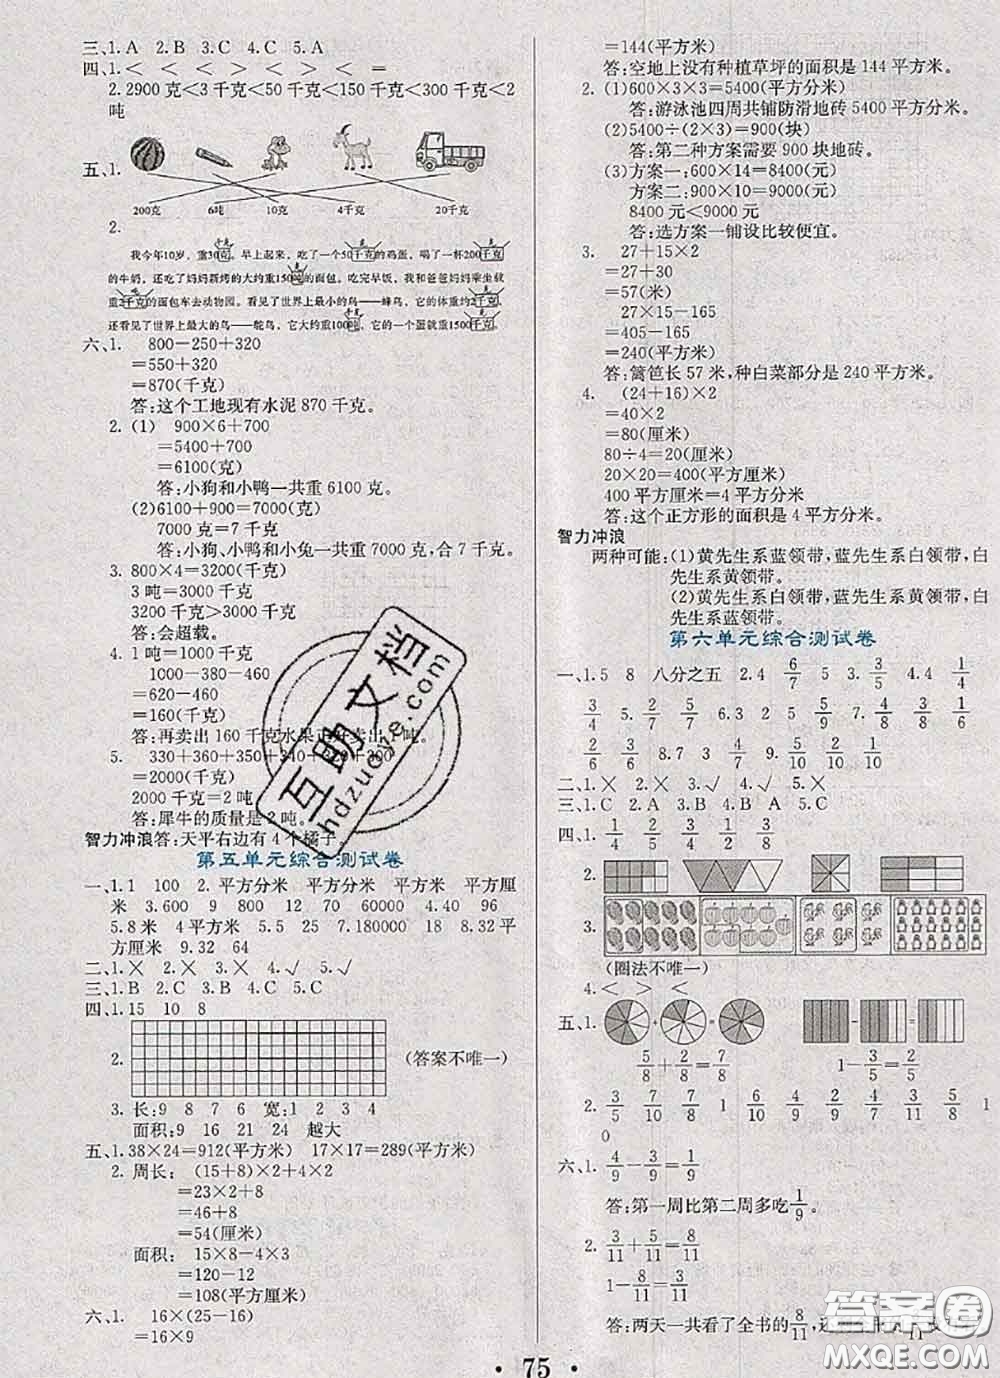 三、1. A  2. B  3. C  4. C  5. A
四、1. ＜  ＜  ＞  ＜  ＞  ＞  ＜  ＝
2. 2900 克＜3 千克＜50 千克＜150 千克＜300 千克＜2
吨
五、1.
200克  6吨  10克  4千克  20千克
2.
我今年10岁，重30克。早上起来，吃了一个50千克的鸡蛋，喝了一杯200千克
的牛奶，还吃了妈妈新烤的大约重100吨的面包。吃完早饭，我和爸爸妈妈乘坐载
重2千克的面包车去动物园。看见了世界上最小的鸟——蜂鸟，它的体重约2千克
还看见了世界上最大的鸟——鸵鸟，它大约重100吨，它的一个蛋就重1500千克
六、1. 800－250＋320
＝550＋320
＝870(千克)
答:这个工地现有水泥 870 千克。
2. (1) 900×6＋700
＝5400＋700
＝6100(克)
答:小狗和小鸭一共重 6100 克。
(2)6100＋900＝7000(克)
7000 克＝7 千克
答:小狗、小鸭和小兔一共重 7000 克,合 7 千克。
3. 800×4＝3200(千克)
3 吨＝3000 千克
3200 千克＞3000 千克
答:会超载。
4. 1 吨＝1000 千克
1000－380－460
＝620－460
＝160(千克)
答:再卖出 160 千克水果正好卖出 1 吨。
5. 330＋360＋350＋340＋320＋300
＝2000(千克)
2000 千克＝2 吨
答:犀牛的质量是 2 吨。
智力冲浪答:天平右边有 4 个橘子。
第五单元综合测试卷
一、1. 1  100  2. 平方分米  平方厘米  平方米  平方厘
米  3. 600  9  800  12  70  60000  4. 40  96
5. 8 米  4 平方米  5. 5  25  7. 180000  18  8. 32 平
方厘米  9. 32  64
二、1. ×  2. ×  3. ×  4. √  5. √
三、1. B  2. C  3. B  4. C  5. C
四、1. 15  10  8
2. (答案不唯一)
3. 长: 9  8  7  6  宽: 1  2  3  4
面积: 9  16  21  24  越大
五、1. 38×24＝912(平方米)  17×17＝289(平方米)
2. 周长: (15＋8)×2＋4×2
＝23×2＋8
＝46＋8
＝54(厘米)
面积: 15×8－4×3
＝120－12
＝108(平方厘米)
六、1. 16×(25－16)
＝16×9
＝144(平方米)
答:空地上没有种植草坪的面积是 144 平方米。
2. (1)600×3×3＝5400(平方分米)
答:游泳池四周共铺防滑地砖 5400 平方分米。
(2)5400÷(2×3)＝900(块)
答:第二种方案需要 900 块地砖。
(3)方案一:600×14＝8400(元)
方案二:900×10＝9000(元)
8400 元＜9000 元
答:选方案一铺设比较便宜。
3. 27＋15×2
＝27＋30
＝57(米)
27×15－165
＝405－165
＝240(平方米)
答:篱笆长 57 米,种白菜部分是 240 平方米。
4. (24＋16)×2
＝40×2
＝80(厘米)
80÷4＝20(厘米)
20×20＝400(平方厘米)
400 平方厘米＝4 平方分米
答:这个正方形的面积是 4 平方分米。
智力冲浪
两种可能:(1)黄先生系蓝领带,蓝先生系白领带,白
先生系黄领带。
(2)黄先生系白领带,蓝先生系黄领带,白
先生系蓝领带。
第六单元综合测试卷
一、1. 5  8  八分之五  2. 4  6/7  5  3. 3/5  4. 4  1/4
3/4  5. 2/7  5/7  6. 3  2  5  7. 4/8  3/10  1/6
2/6  2/6  3/6  8. 7  3  4  9. 5/10  2/10  3/10
二、1. ×  2. √  3. ×  4. √  5. √
三、1. C  2. A  3. B  4. B  5. C
四、1. 1/4  1/2  3/8  1/4
2.
3.
(圈法不唯一)
4. ＜  ＞  ＜
五、1. ＋ ＝  － ＝
5/8＋2/8＝7/8  1－3/5＝2/5
2. 3/5  7/10  7/8  1  6/10  2/7  4/7  3/11  5/8  1
0
六、1. 4/9－3/9＝1/9
答:第一周比第二周多吃1/9。
2. 3/11＋5/11＝8/11
1－8/11＝3/11
答:两天一共看了全书的8/11,还
75
互助文档
hdzuoye.com
答案卷
MXQE.COM